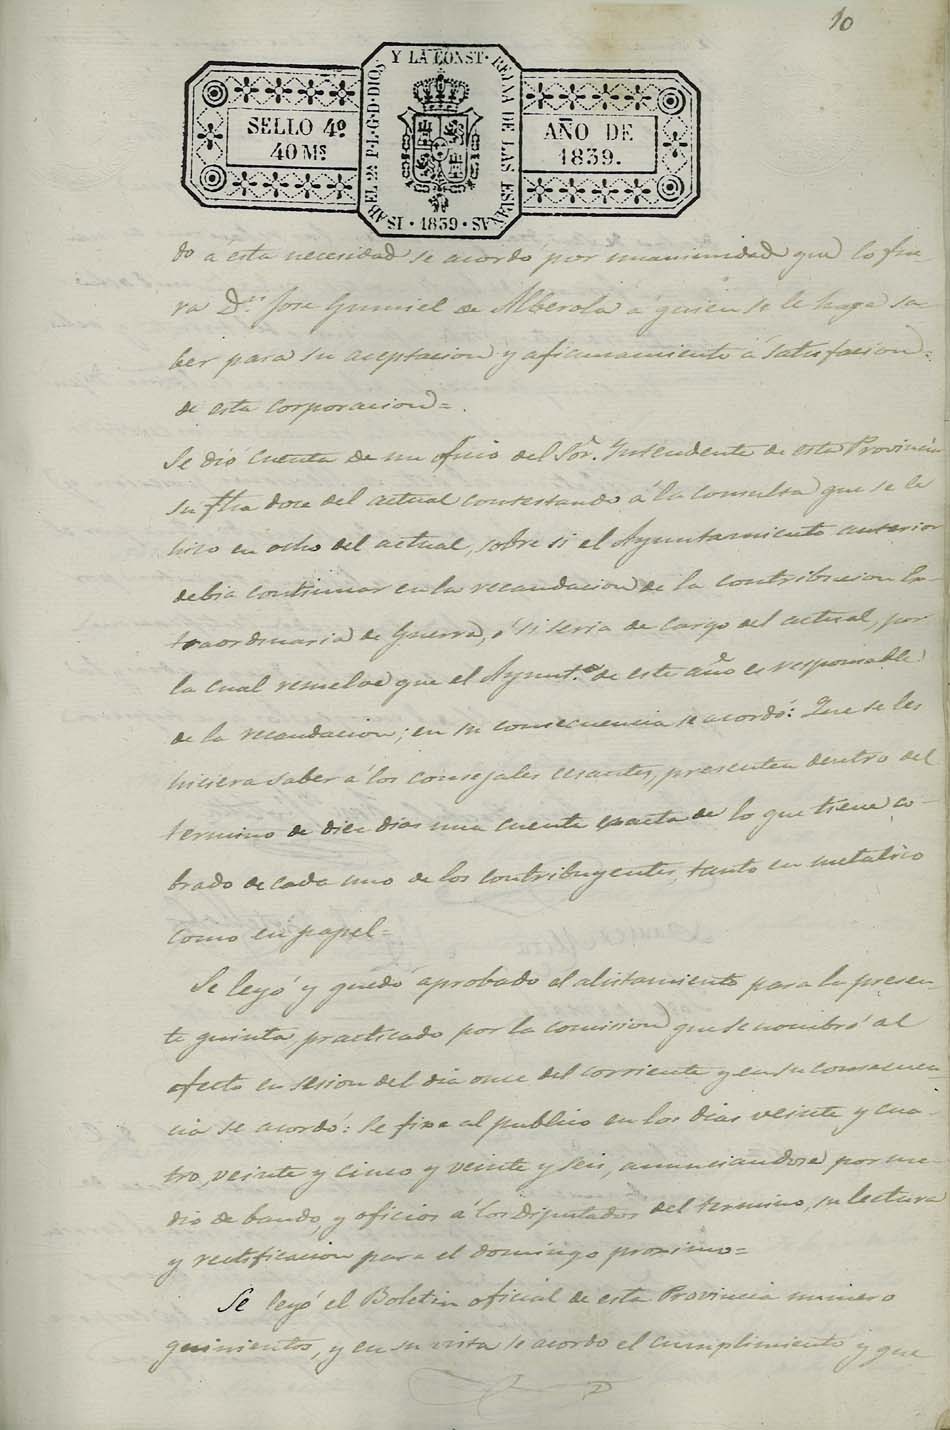 10
SELLO 4º
40 Mˢ
ISABEL 2ª P·L·G·D·DIOS Y LA CONST· REYNA DE LAS ESPAÑAS · 1839 ·
AÑO DE
1839.
do á esta necesidad se acordó por unanimidad que lo fue-
ra Dⁿ. Jose Gumiel de Alberola á quien se le haga sa-
ber para su aceptacion y afianzamiento á satisfacion
de esta corporacion=.
Se dió cuenta de un oficio del Sor. Intendente de esta Provincia
su fha doce del actual contestando á la consulta que se le
hico en ocho del actual, sobre si el Ayuntamiento anterior
debia continuar en la recaudacion de la contribucion Es-
traordinaria de Guerra, ó si seria de cargo del actual, por
la cual remelve que el Ayuntº. de este año es responsable
de la recaudacion; en su consecuencia se acordó: Que se les
hiciera saber á los consejales cesantes, presenten dentro del
termino de diez dias una cuenta exacta de lo que tiene co-
brado de cada uno de los contribuyentes, tanto en metalico
como en papel=
Se leyó y quedó aprobado el alistamiento para la presen-
te quinta, practicado por la comision que se nombró al
efecto en sesion del dia once del corriente y en su consecuen-
cia se acordó: Se fixe al publico en los dias veinte y cua-
tro, veinte y cinco y veinte y seis, anunciandose por me-
dio de bando, y oficios á los Diputados del termino, su lectura
y rectificacion para el domingo proximo=
Se leyó el Boletin oficial de esta Provincia numero
quinientos, y en su vista se acordo el cumplimiento y que